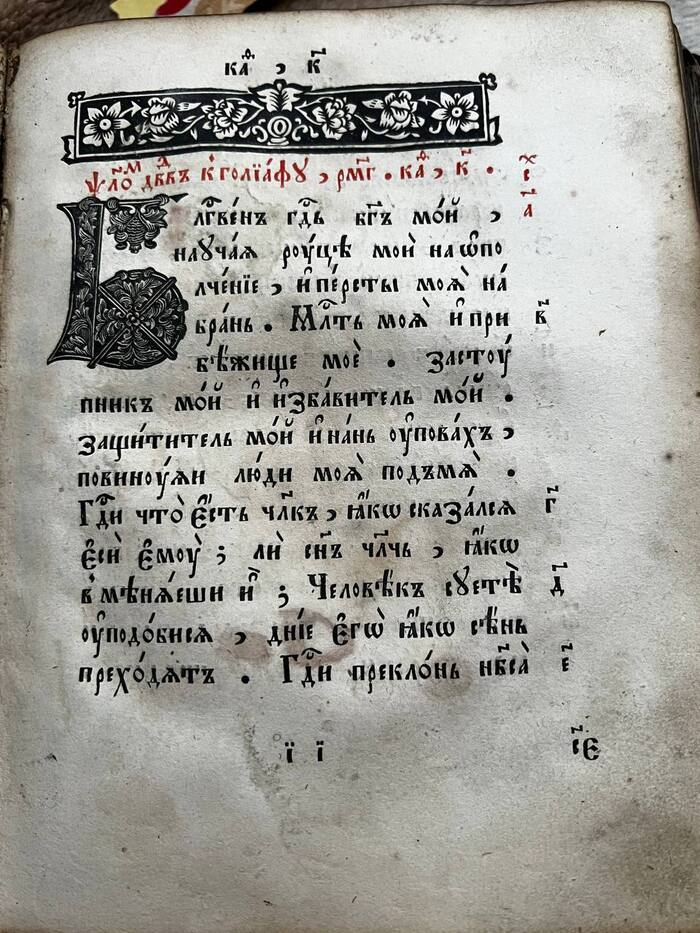 каѳ , к҃
ѱло́м дв҃дъ к голїа́ѳу , рм҃г . каѳ , к҃ .
Блгⷭ҇ве́нъ гдⷭ҇ь бг҃ъ мо́й , а҃
науча́ѧ роу́цѣ мои̑ на ѡ҆по
лче́нїе , и҆ пе́рсты моѧ̑ на́
бра́нь . Млⷭ҇ть моѧ̀ и҆ при в҃
бѣ́жище моѐ . застоу́
пникъ мо́й и҆ и҆зба́витель мо́й .
защи́титель мо́й и҆ на́нь ѹ҆пова́хъ ,
повиноу́ѧи лю́ди моѧ̑ подъ мѧ̀ .
Гдⷭ҇и что̀ є҆́сть члк҃ъ , ꙗ҆́кѡ сказа́лсѧ г҃
є҆сѝ є҆моу̀ ; лѝ сн҃ъ члч҃ь , ꙗ҆́кѡ
вмѣнѧ́еши и҆̀ ; Человѣ́къ суетѣ̀ д҃
ѹ҆подо́бисѧ , дні́е є҆гѡ̀ ꙗ҆́кѡ сѣ́нь
прехо́дѧтъ . Гдⷭ҇и прекло́нь нб҃са̀ є҃
ї ї с҃Є